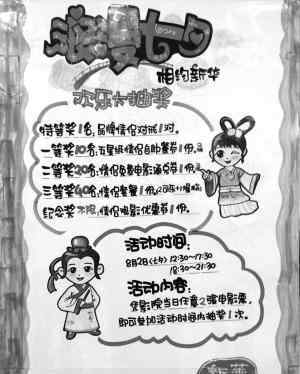 浪漫七夕
相约新华
欢乐大抽奖
特等奖1名,品牌情侣对戒1对。
一等奖10名:五星级情侣自助餐券1份。
二等奖20名:情侣免费电影通兑券1份。
三等奖40名:情侣套餐1份
纪念奖不限:情侣电影优惠券1份。
活动时间:
8月2日(七夕) 12:30~17:30
18:30~21:30
活动内容:
凭影院当日任意2张电影票,
即可参加活动时间内抽奖1次。